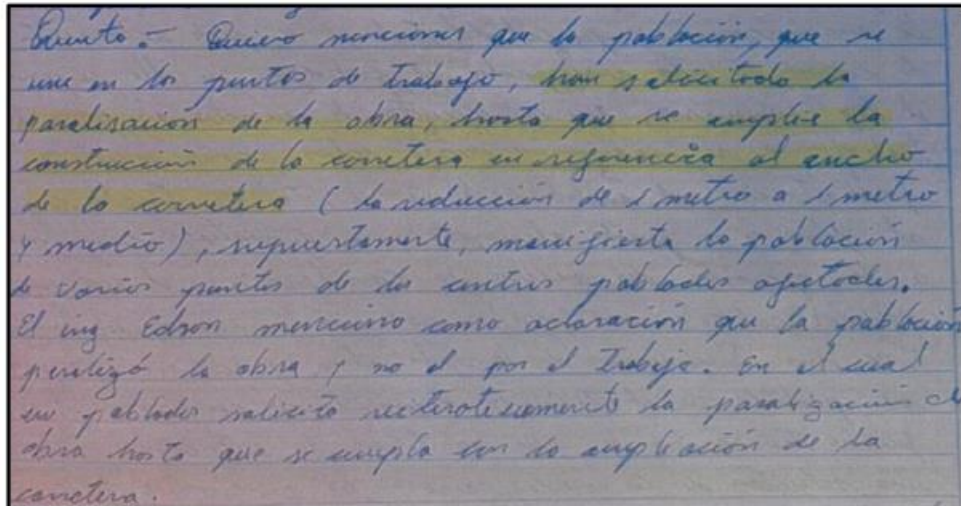 Quinto.- Quiero mencionar que la población, que se
une en los puntos de trabajo, han solicitado la
paralisación de la obra, hasta que se amplie la
construcción de la carretera en referencia al ancho
de la carretera (la reducción de 1 metro a 1 metro
y medio), supuestamente, manifiesta la población
de varios puntos de los centros poblados afectados.
El ing Edson menciono como aclaración que la población
paralizó la obra y no el por el trabajo. En el cual
poblador solicito reiterativamente la paralización de
obra hasta que se cumpla con la ampliación de la
carretera.